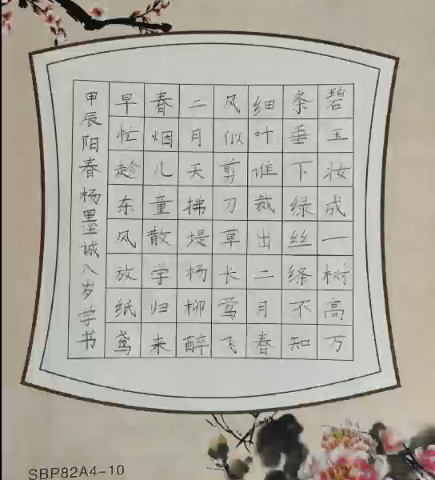 碧玉妆成一树高万
条垂下绿丝绦不知
细叶谁裁出二月春
风似剪刀草长莺飞
二月天拂堤杨柳醉
春烟儿童散学归来
早忙趁东风放纸鸢
甲辰阳春杨墨诚八岁学书
SBP82A4-10